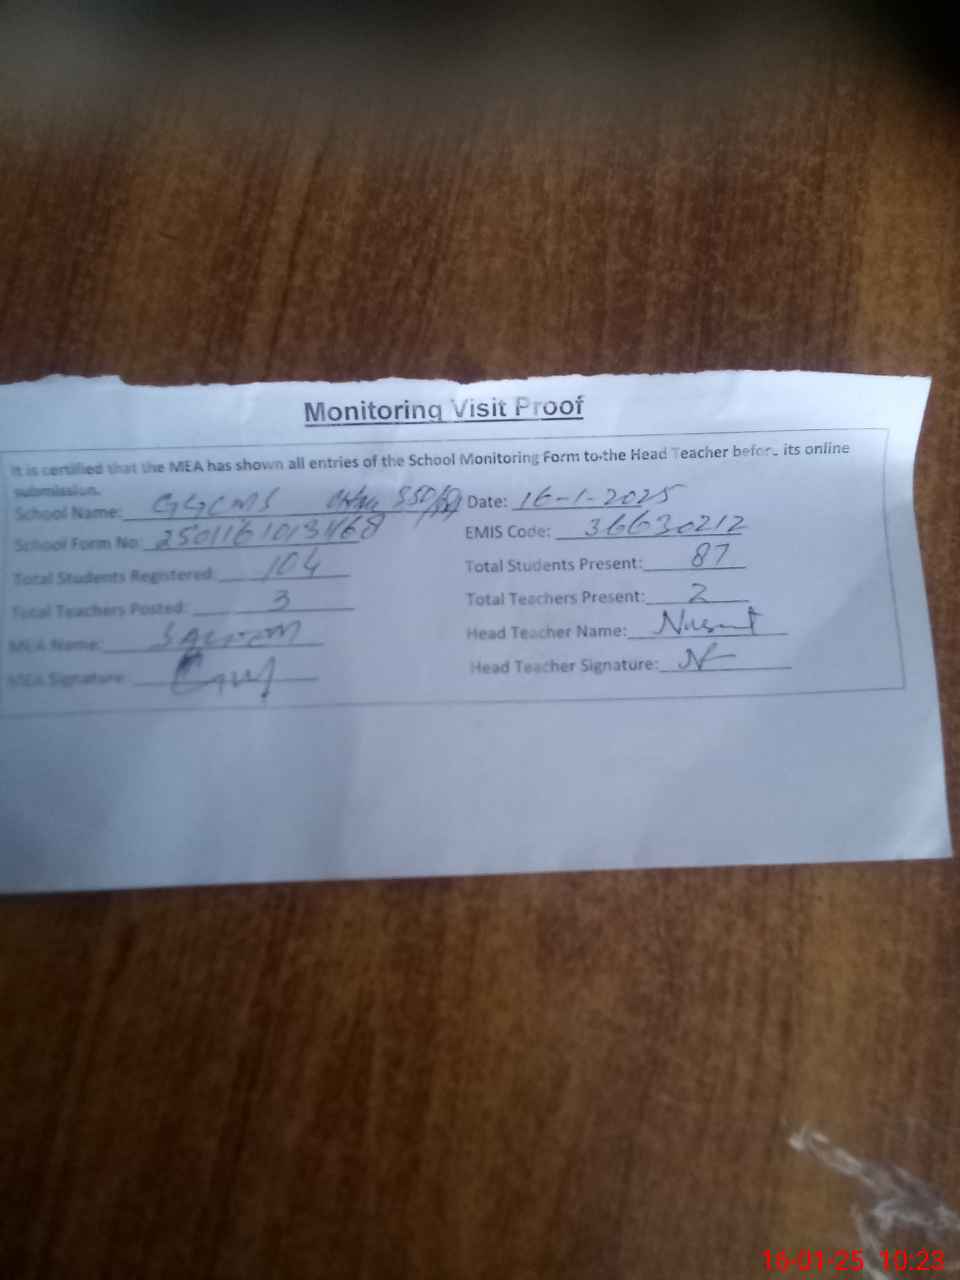 Monitoring Visit Proof
It is certified that the MEA has shown all entries of the School Monitoring Form to the Head Teacher before its online
submission.
School Name: GGCMS Date: 16-1-2025
School Form No: EMIS Code: 36630212
Total Students Registered: 104 Total Students Present: 87
Total Teachers Posted: 3 Total Teachers Present: 2
MEA Name: Head Teacher Name:
MEA Signature: Head Teacher Signature:
16-01-25 10:23